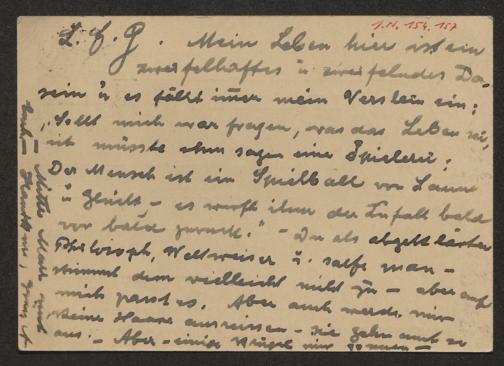 I.N. 154.157
L. f. G. Mein Leben hier ist ein
zweifelhaftes u zweifelndes Da-
sein u es fällt immer mein Verslein ein:
"Sollt mich wer fragen, was das Leben sei,
ich müsste ihm sagen eine Spielerei.
Der Mensch ist ein Spielball von Laune
u Glück – es wirft ihm der Zufall bald
vor bald zurück." – Du als abgeklärter
Philosoph, Weltweiser u.
stimmt dem vielleicht nicht zu – aber auf
mich passt es. Aber auch werde mir
keine Haare ausreissen – sie gehn auch so
aus. – Aber – einige Prügel mir
Mutter